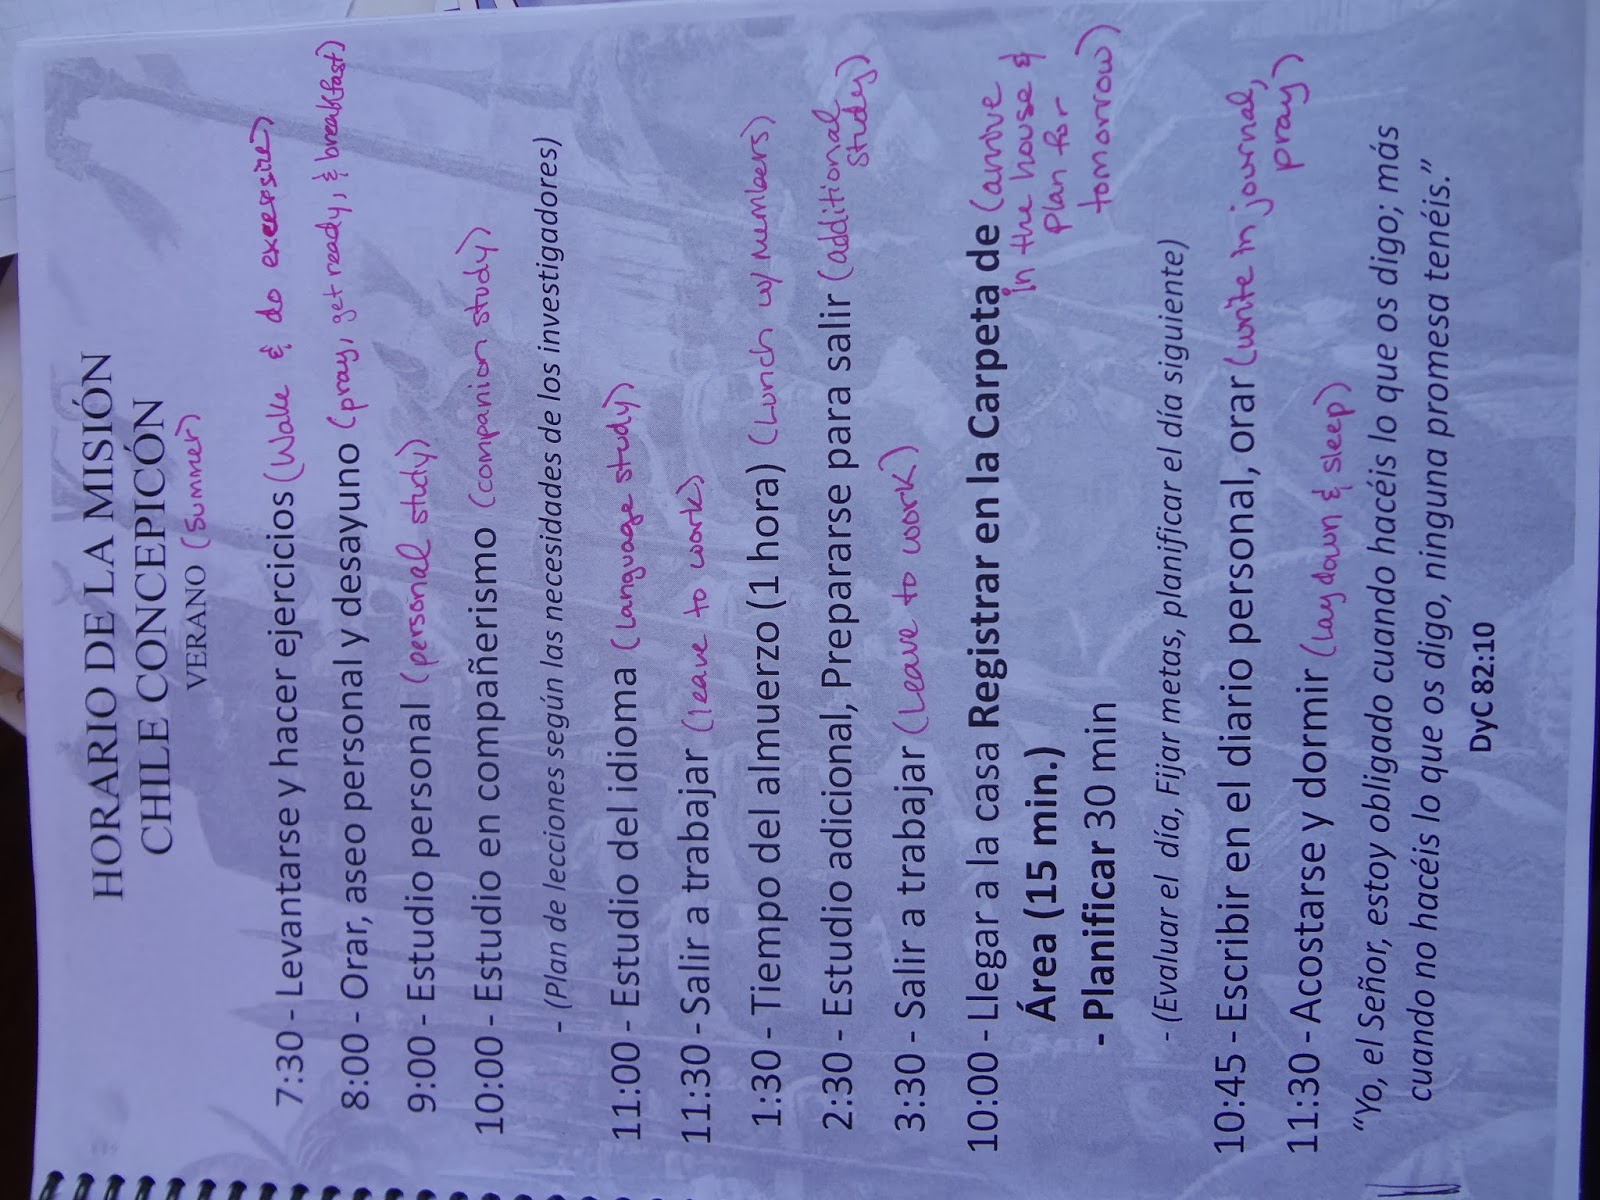 HORARIO DE LA MISIÓN
CHILE CONCEPICÓN
VERANO (Summer)
7:30 - Levantarse y hacer ejercicios (Wake & do exersire)
8:00 - Orar, aseo personal y desayuno (pray, get ready, & breakfast)
9:00 - Estudio personal (personal study)
10:00 - Estudio en compañerismo (companion study)
- (Plan de lecciones según las necesidades de los investigadores)
11:00 - Estudio del idioma (Language study)
11:30 - Salir a trabajar (leave to work)
1:30 - Tiempo del almuerzo (1 hora) (Lunch w/ members)
2:30 - Estudio adicional, Prepararse para salir (additional
study)
3:30 - Salir a trabajar (Leave to work)
10:00 - Llegar a la casa Registrar en la Carpeta de (arrive
Área (15 min.) in the house &
- Planificar 30 min plan for
tomorrow)
- (Evaluar el día, Fijar metas, planificar el día siguiente)
10:45 - Escribir en el diario personal, orar (write in journal,
pray)
11:30 - Acostarse y dormir (Lay down & sleep)
"Yo, el Señor, estoy obligado cuando hacéis lo que os digo; más
cuando no hacéis lo que os digo, ninguna promesa tenéis."
DyC 82:10